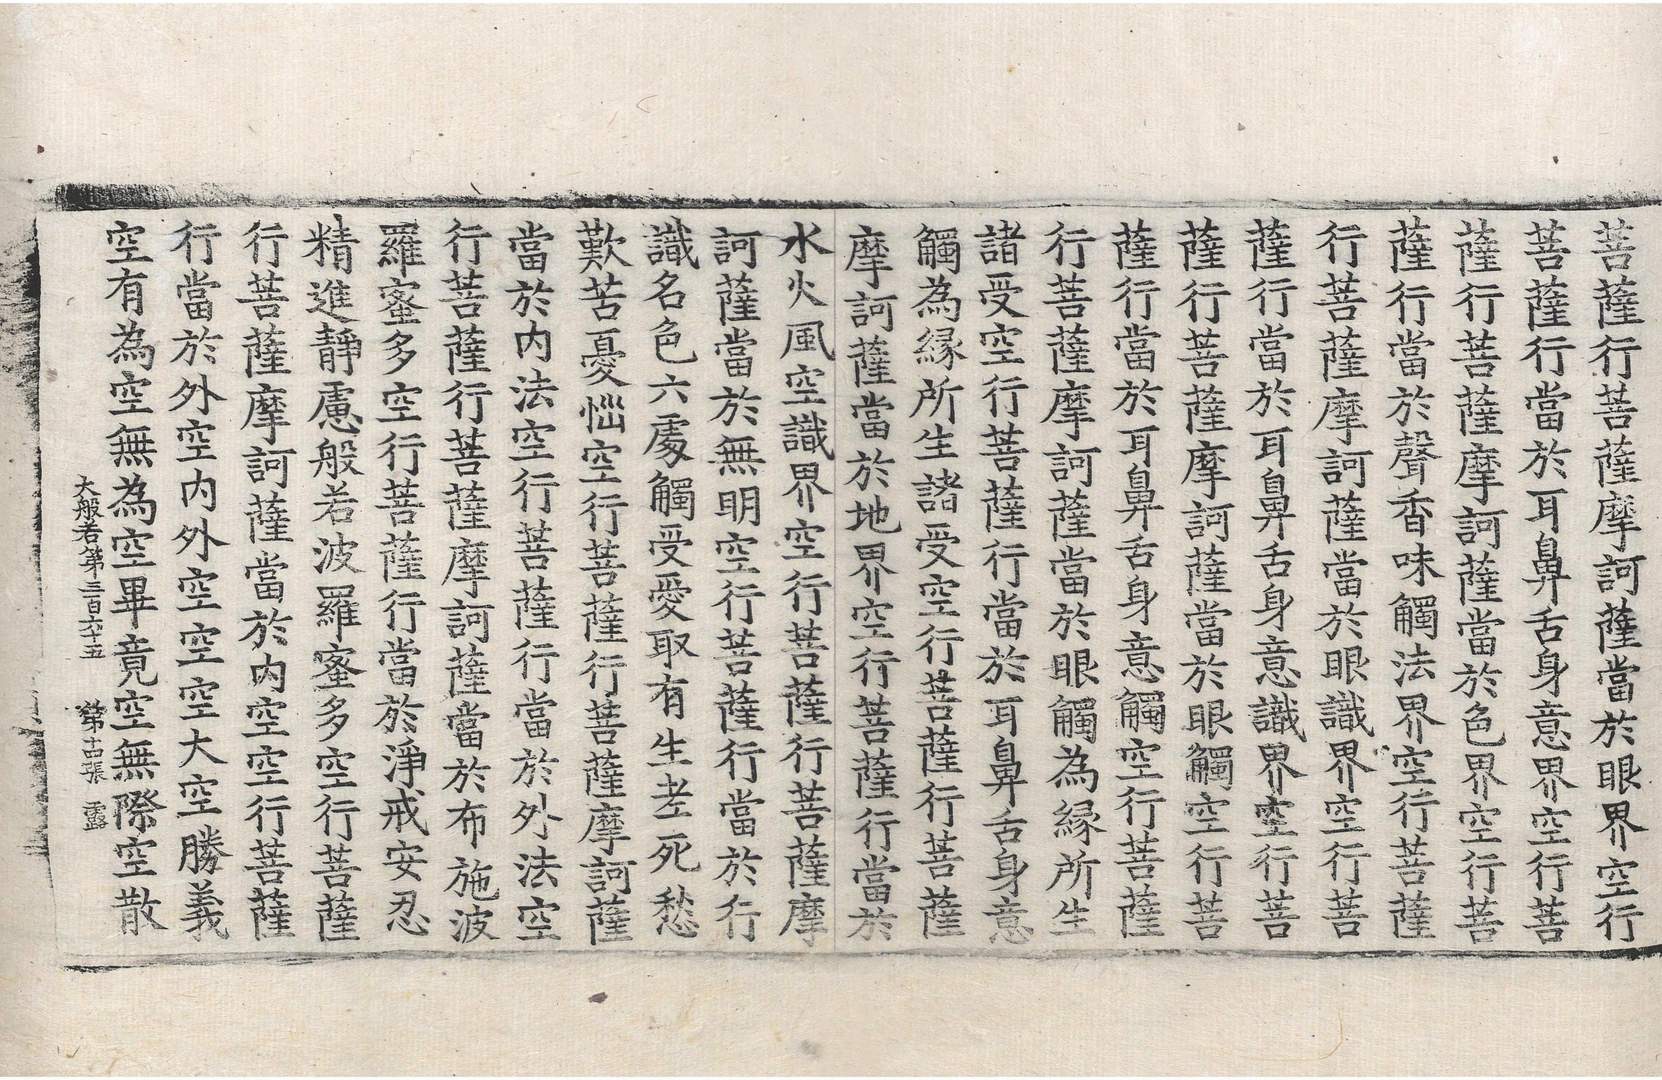 菩薩行菩薩摩訶薩當於眼界空行
菩薩行當於耳鼻舌身意界空行菩
薩行菩薩摩訶薩當於色界空行菩
薩行當於聲香味觸法界空行菩薩
行菩薩摩訶薩當於眼識界空行菩
薩行當於耳鼻舌身意識界空行菩
薩行菩薩摩訶薩當於眼觸空行菩
薩行當於耳鼻舌身意觸空行菩薩
行菩薩摩訶薩當於眼觸為緣所生
諸受空行菩薩行當於耳鼻舌身意
觸為緣所生諸受空行菩薩行菩薩
摩訶薩當於地界空行菩薩行當於
水火風空識界空行菩薩行菩薩摩
訶薩當於無明空行菩薩行當於行
識名色六處觸受愛取有生老死愁
歎苦憂惱空行菩薩行菩薩摩訶薩
當於內法空行菩薩行當於外法空
行菩薩行菩薩摩訶薩當於布施波
羅蜜多空行菩薩行當於淨戒安忍
精進靜慮般若波羅蜜多空行菩薩
行菩薩摩訶薩當於內空空行菩薩
行當於外空內外空空空大空勝義
空有為空無為空畢竟空無際空散
大般若第三百六十五 第十古張 露